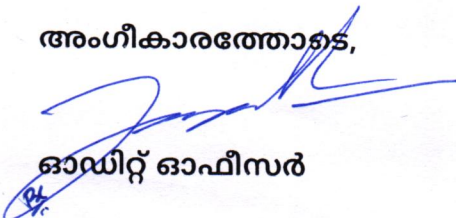 അംഗീകാരത്തോടെ,
ഓഡിറ്റ് ഓഫീസർ